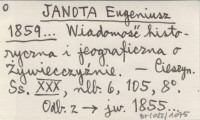 o JANOTA Eugeniusz
1859... Wiadomość histo-
ryczna i jeograficzna o
Żywiecczyźnie. — Cieszyn.
Ss. XXX, nlb: 6, 105, 8°.
Odb. z → jw. 1855...